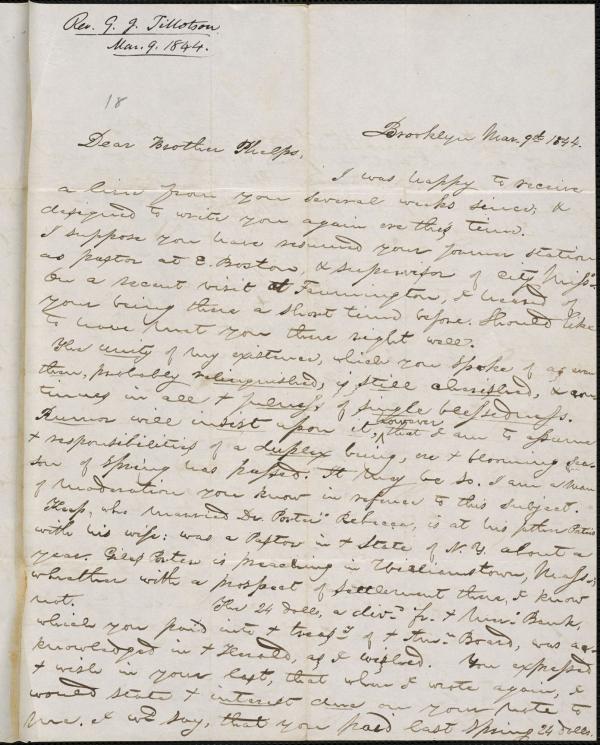 Rev. G. J. Tillotson
Mar. 9. 1844.
18
Brooklyn Mar. 9th 1844.
Dear Brother Phelps,
I was happy to receive
a line from you several weeks since, &
designed to write you again ere this time.
I suppose you have resumed your former station
as pastor at E. Boston, & supervisor of City Miss
On a recent visit at Farmington, I heard of
your being there a short time before. Should like
to have met you there right well.
The unity of my existence, which you spoke of as even
then, probably relinquished, is still cherished, & con
tinues in all + plenss. of single blessedness.
Rumor will insist upon it, however, that I am to assume
+ responsibilities of a duplex being, ere + blooming sea-
son of Spring has passed. It may be so. I am a man
of moderation you know in reference to this subject.
who married Dr. Porter's Rebecca, is at his
with his wife: was a Pastor in + State of N. Y. about a
year. Giles Porter is preaching in Williamstown, Mass.;
whether with a prospect of settlement there, I know
not. The 24 dolls, a divd. fr. + Bank,
which you paid into + treasy of + Am. Board, was ac-
knowledged in + Herald, as I wished. You expressed
+ wish in your last, that when I wrote again, I
would state + interest due on your note to
me. I wd say, that you paid last Spring 24 dolls.